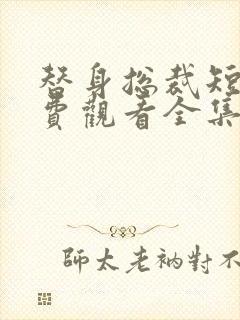 替身總裁短
費觀看全集
師太老衲對不